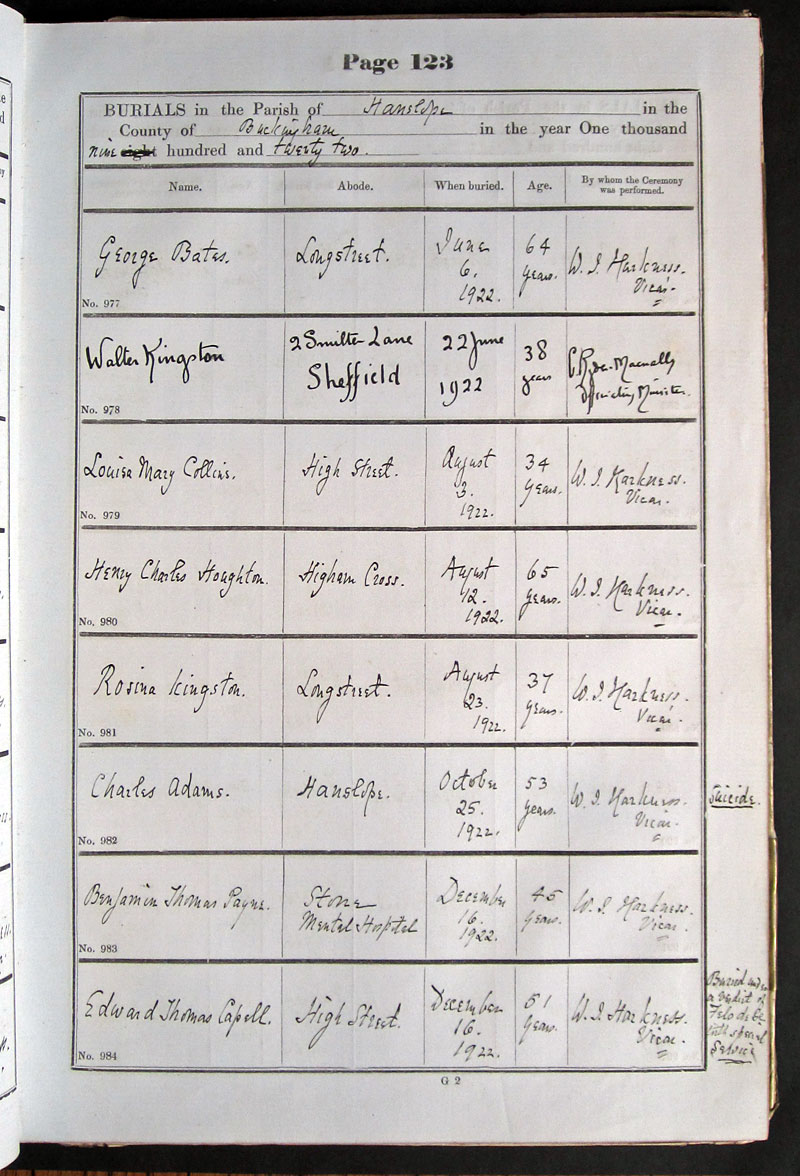 Page 123
BURIALS in the Parish of Hanslope in the
County of Buckingham in the year One thousand
nine eight hundred and twenty two.
Name. Abode. When buried. Age. By whom the Ceremony was performed.
George Bates. Longstreet. June 6. 1922. 64 years. W. J. Harkness. Vicar.
No. 977
Walter Kingston 2 Smilter Lane Sheffield 22 June 1922 38 years Officiating Minister.
No. 978
Louisa Mary Collins. High Street. August 3. 1922. 34 years. W. J. Harkness. Vicar.
No. 979
Henry Charles Houghton. Higham Cross. August 12. 1922. 65 years. W. J. Harkness. Vicar.
No. 980
Rosina Kingston. Longstreet. August 23. 1922. 37 years. W. J. Harkness. Vicar.
No. 981
Charles Adams. Hanslope. October 25. 1922. 53 years. W. J. Harkness. Vicar. Suicide.
No. 982
Benjamin Thomas Payne. Stone Mental Hospital December 16. 1922. 45 years. W. J. Harkness. Vicar.
No. 983
Edward Thomas Capell. High Street. December 16. 1922. 51 years. W. J. Harkness. Vicar.
No. 984
Buried under
a verdict of
Felo de se
with special
Service
G 2